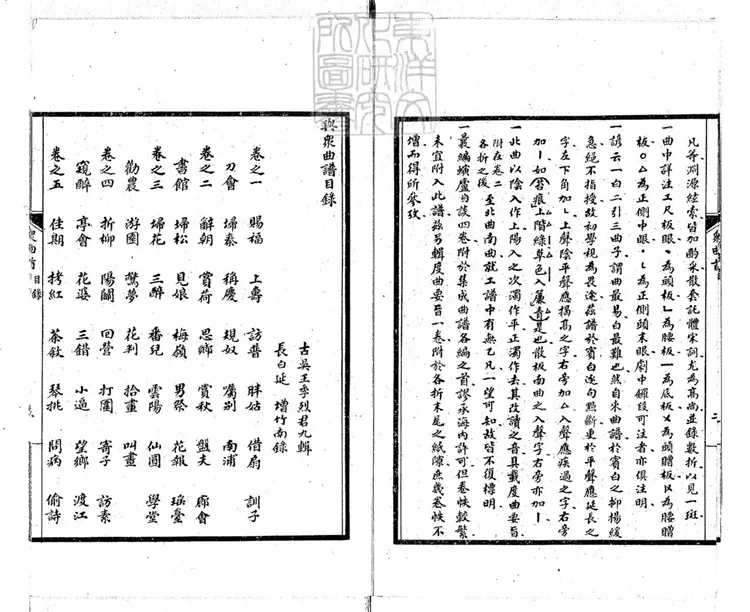 凡等溯源經索皆加酌采散套託體宋詞尤為高尚並錄數折以見一斑
一曲中詳注工尺板眼、為頭板 為腰板 為底板 為頭贈板 為腰贈
板○△為正側中眼 為正側頭末眼劇中鑼段可注者亦俱注明
一諺云一白二引三曲子謂曲最易白最難也然自來曲譜於賓白之抑揚緩
急絕不指授故初學視為畏途茲譜於賓白逐句點斷更於平聲應延長之
字左下角加 上聲陰平聲應揭高之字右旁加 入聲應疾過之字右旁
加 如 苔痕上階綠草色入簾青是也散板南曲之入聲字右旁亦加
一北曲以陰入作上陽入之次濁作平正濁作去其改讀之音具載度曲要旨
附在卷二各折之後 至北曲南曲就工譜中有無乙凡一望可知故皆不復標明
一最編螾廬曲談四卷附於集成曲譜各編之首謬承海內許可但卷帙較繁
未宜附入此譜茲另輯度曲要旨一卷附於各折末尾之紙隙庶幾卷帙不
增而得所參攷
三
與衆曲譜目錄
古吳王季烈君九輯
長白延 增竹南錄
卷之一 賜福 上壽 訪普 胖姑 借扇 訓子
刀會 掃秦 稱慶 規奴 囑別 南浦
卷之二 辭朝 賞荷 思鄉 賞秋 盤夫 廊會
書館 掃松 見娘 梅嶺 男祭 花報 瑤臺
卷之三 掃花 三醉 番兒 雲陽 仙圓 學堂
勸農 游園 驚夢 花判 拾畫 叫畫
卷之四 折柳 陽關 回營 打圍 寄子 訪素
窺醉 亭會 花逼 三錯 小逼 望鄉 渡江
卷之五 佳期 拷紅 茶敘 琴挑 問病 偷詩
目錄